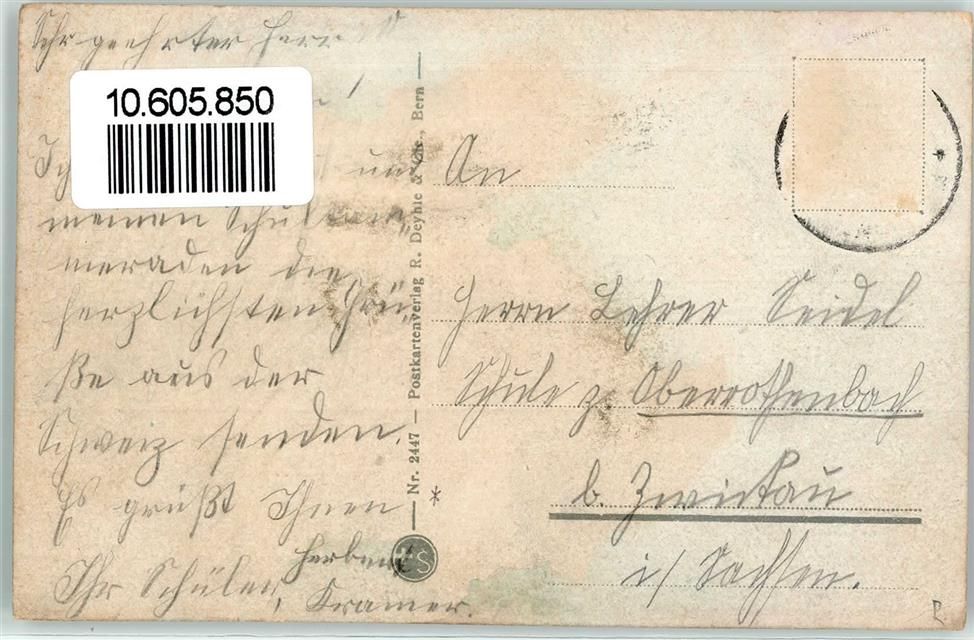 Sehr geehrter Herr
10.605.850
!
Ich und
meinen Schulkam-
meraden die
herzlichsten Grü-
ße aus der
Schweiz senden.
Es grüßt Ihnen
Ihr Schüler,
Herbert
Kramer.
Nr. 2447 — Postkartenverlag R. Deyhle & Cie., Bern
An
Herrn Lehrer Seidel
Schule z. Oberrothenbach
b. Zwickau
i/ Sachsen.